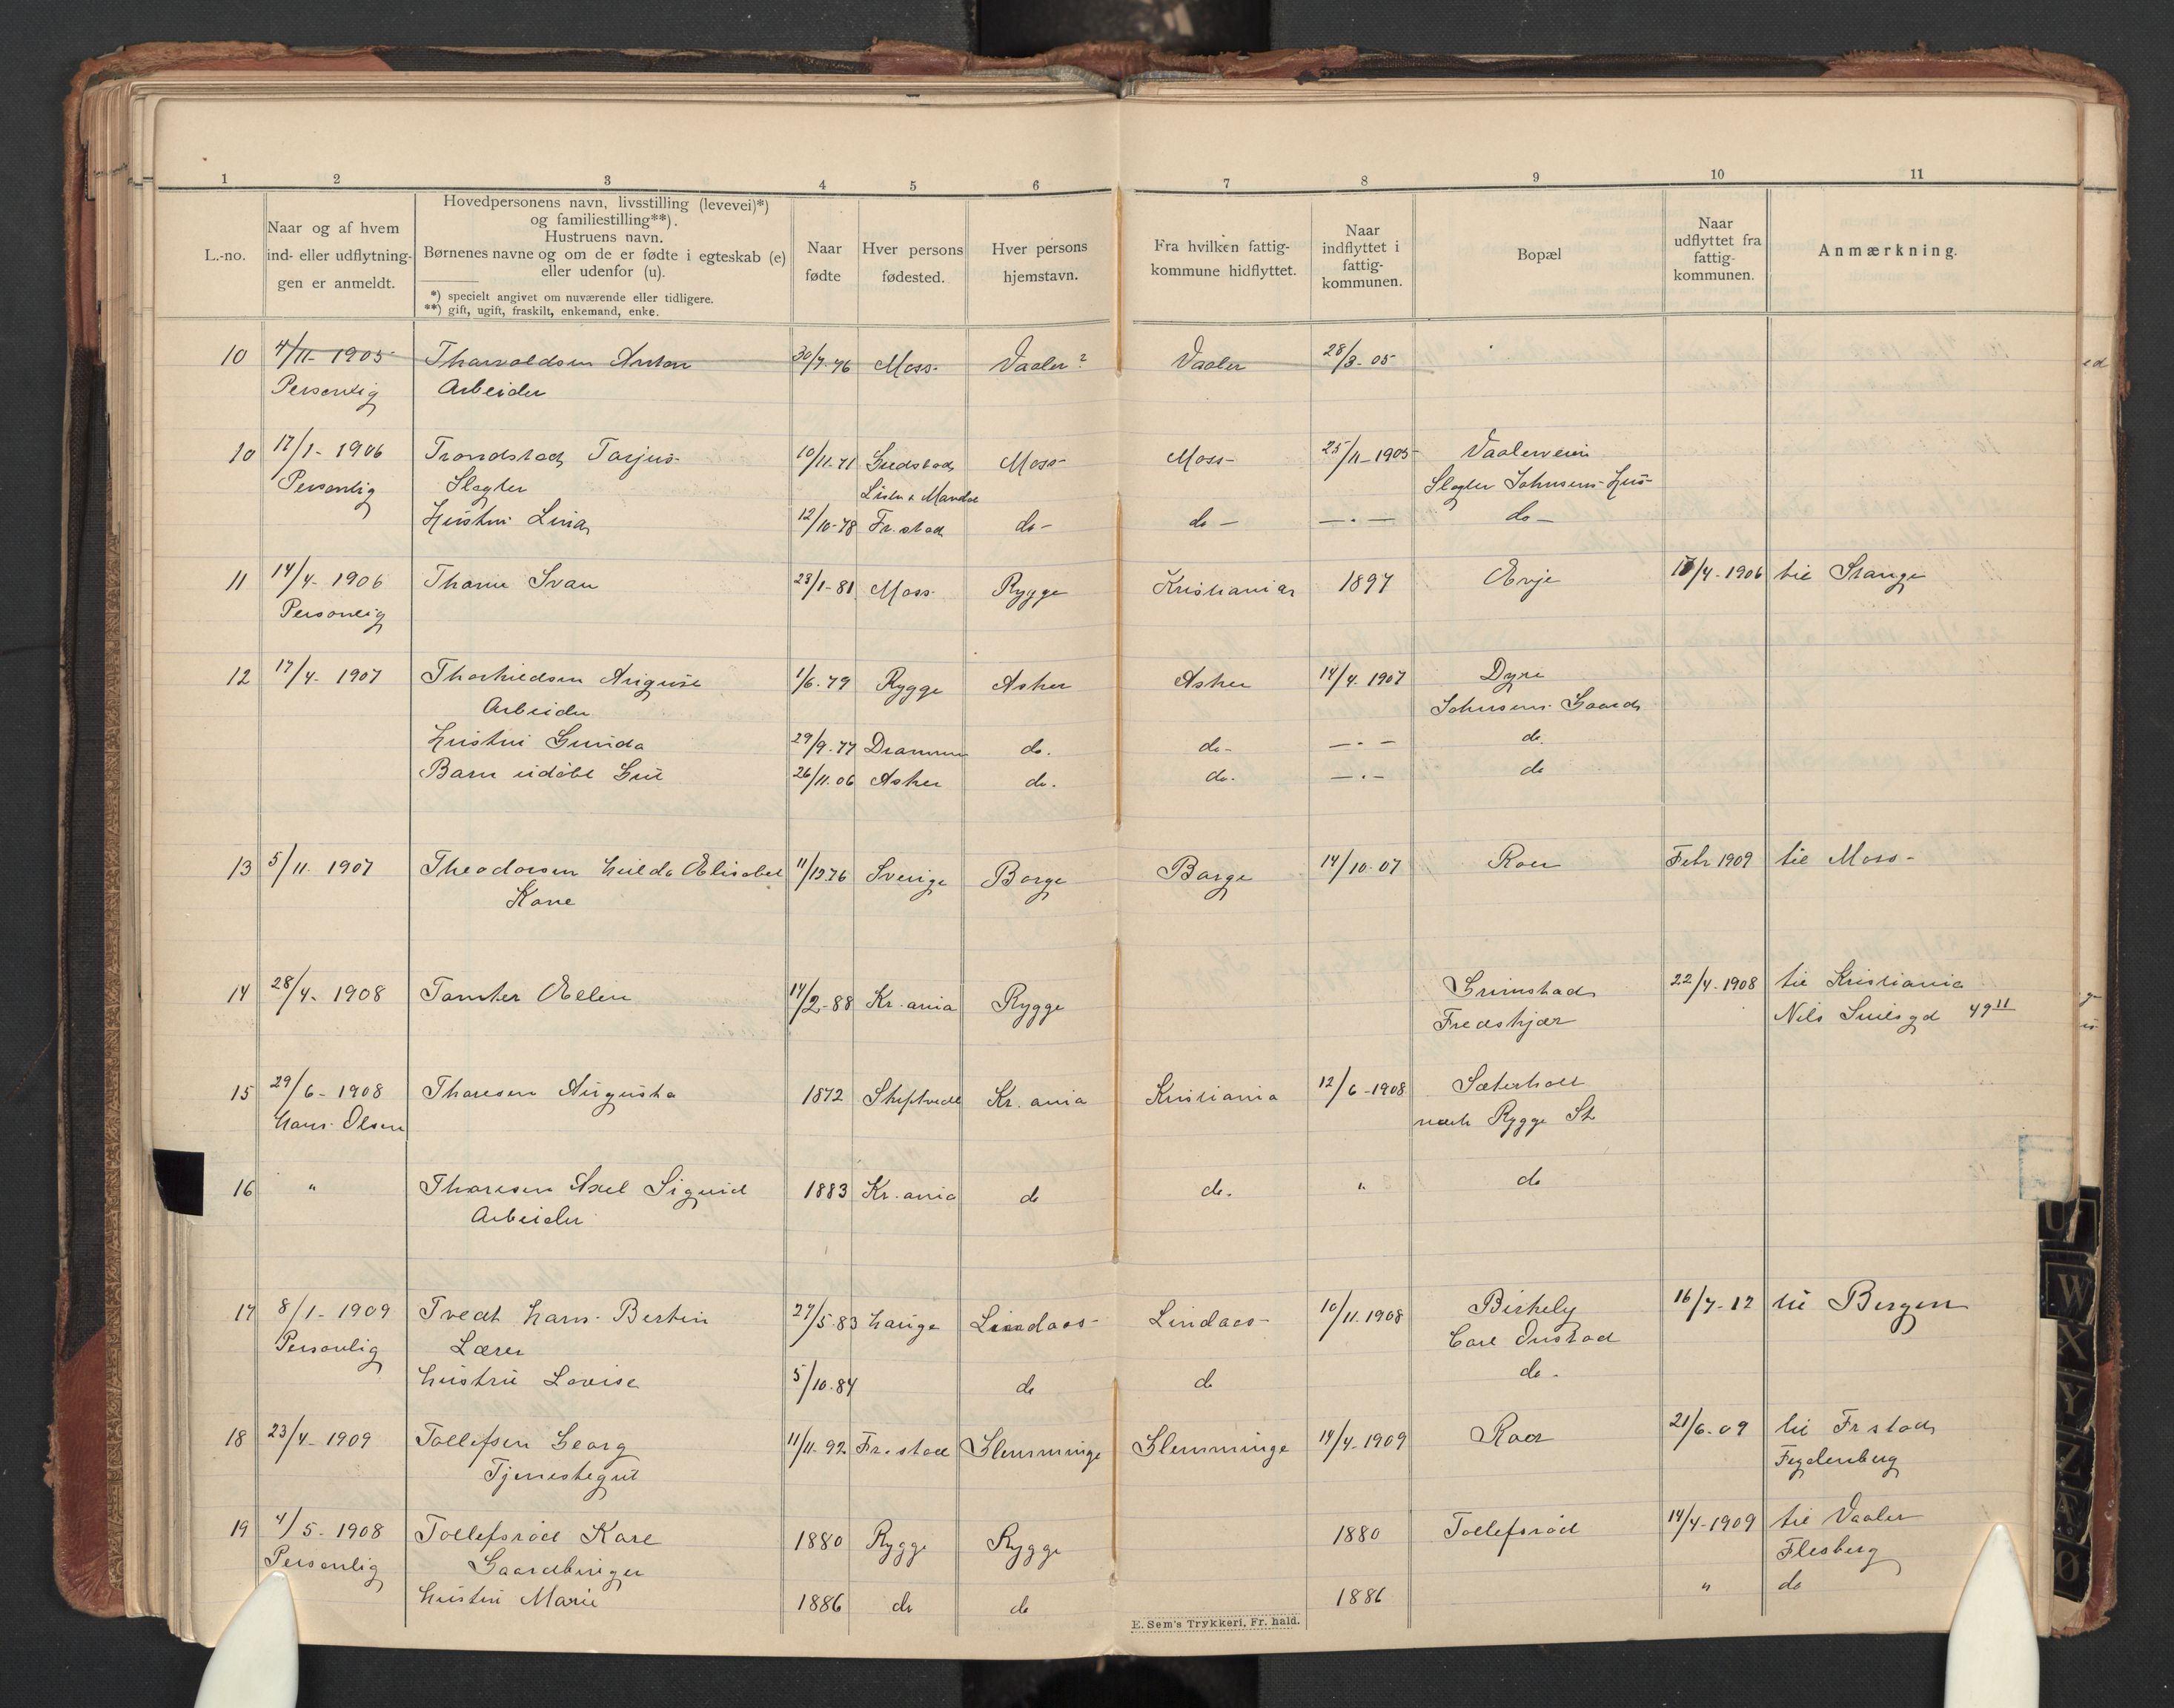 1 2 3 4 5 6 7 8 9 10 11
L.-no.
Naar og af hvem
ind- eller udflytnin-
gen er anmeldt.
Hovedpersonens navn, livsstilling (levevei)*)
og familiestilling**).
Hustruens navn.
Børnenes navne og om de er fødte i egteskab (e)
eller udenfor (u).
*) specielt angivet om nuværende eller tidligere.
**) gift, ugift, fraskilt, enkemand, enke.
Naar
fødte
Hver persons
fødested.
Hver persons
hjemstavn.
Fra hvilken fattig-
kommune hidflyttet.
Naar
indflyttet i
fattig-
kommunen.
Bopæl
Naar
udflyttet fra
fattig-
kommunen.
Anmærkning.
10 4/11- 1905 Thorvaldsen Anton 30/7-76 Moss- Vaaler? Vaaler 28/3-05
Personlig Arbeider
10 17/1- 1906 Trondstad, Tarjus- 10/11-71 Moss- Moss- 25/11-1905 Vaalerveien
Personlig Slagter Lister & Mandal Slagter Johnsens Hus-
Hustru Lina 12/10-78 Fr.stad do- do- —"— do-
11 14/4- 1906 Thorne Ivan 23/1-81 Moss- Rygge Kristiania 1897 Evje 17/4-1906 til Stange
Personlig
12 17/4- 1907 August 1/6-79 Rygge Asker Asker 14/4-1907 Dyre
Arbeider Johnsens Gaard
Hustru Gunda 29/9-77 Drammen do. do- —"— do.
Barn udøbt Gut 26/11.06 Asker do. do. —"— do
13 5/11. 1907 Theodorsen Hilda Elisabet 11/12-76 Sverige Borge Borge 14/10-07 Roer Febr 1909 til Moss-
Kone
14 28/4- 1908 Tomter Ellen 14/2-88 Kr.ania Rygge Grimstad 22/4-1908 til Kristiania
Fredskjær Nils Juelsgd 49 II
15 29/6- 1908 Thoresen Augusta 1872 Skiptvedt Kr.ania Kristiania 12/6-1908 Sæterholt
Hans Olsen Rygge St
16 " Thoresen Axel Sigurd 1883 Kr.ania do do. " do
Arbeider
17 8/1- 1909 Tvedt Hans Bertin 27/5-83 Hauge Lindaas- Lindaas- 10/11.1908 Birkely 16/7-12 til Bergen
Personlig Lærer Carl Onstad
Hustru Lovise 5/10-84 do do do.
18 23/4- 1909 Tollefsen Georg 11/11-92 Fr.stad Glemminge Glemminge 14/4-1909 Roer 21/6-09 til Fr stad
Tjenestegut
19 4/5- 1908 Tollefsrød Karl 1880 Rygge Rygge 1880 Tollefsrød 14/4-1909 til Vaaler
Personlig Gaardbruger Flesberg
Hustru Marie 1886 do do 1886 " do
E. Sem's Trykkeri, Fr. hald.
U
W
X
Y
Z
Æ
Ø